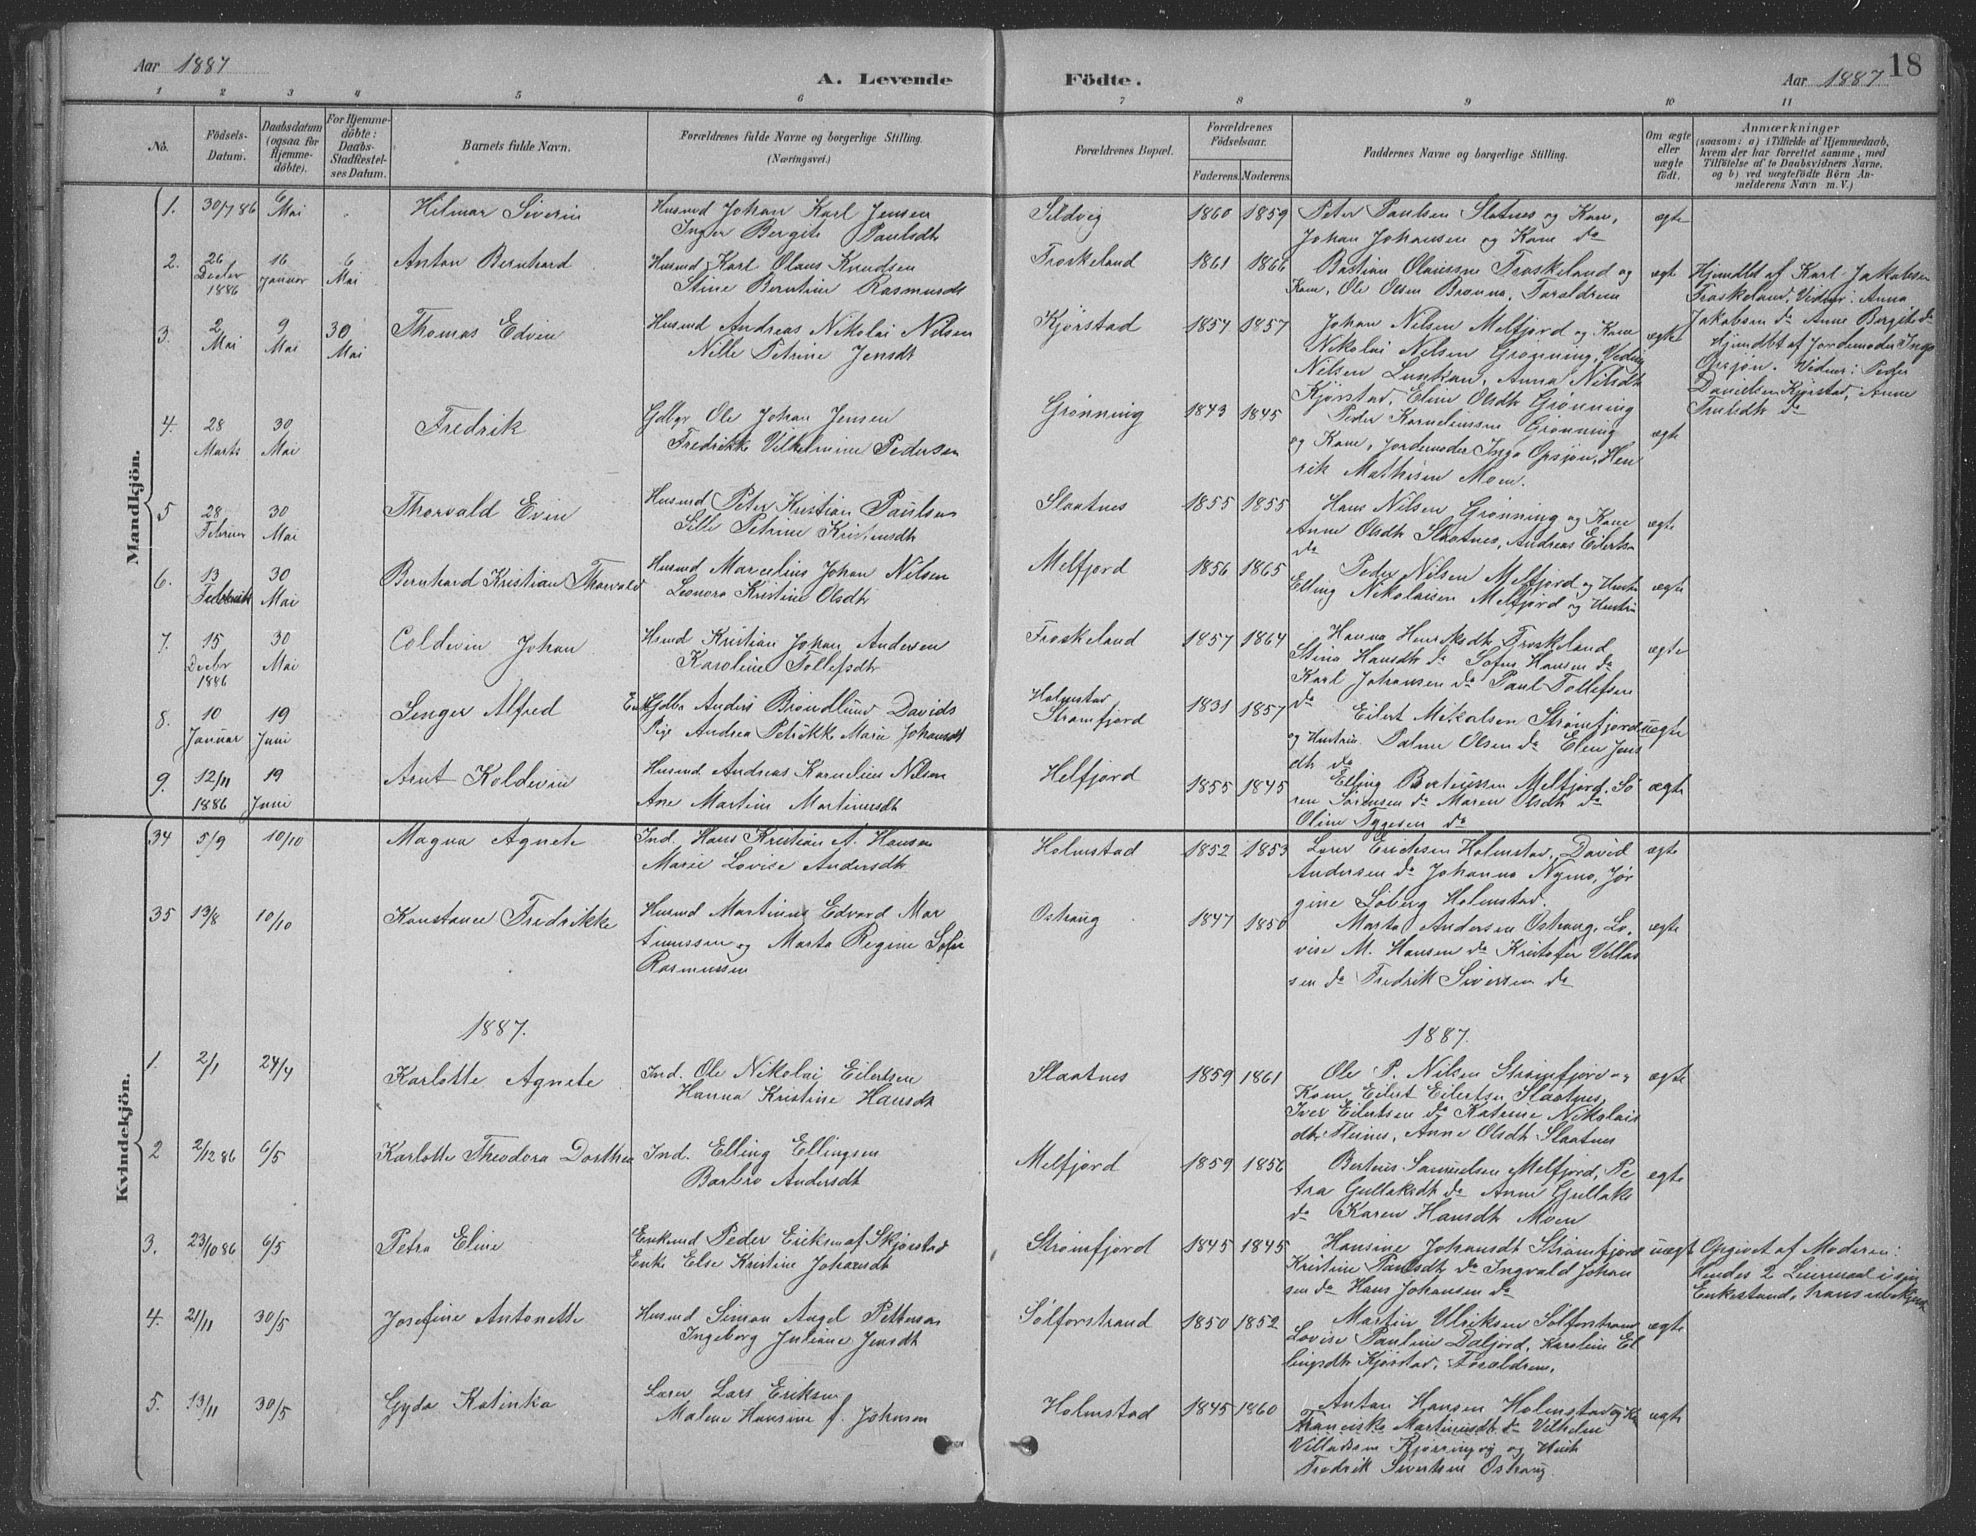 Aar 1887
A. Levende
Födte.
Aar 1887
18
1 2 3 4 5 6 7 8 9 10 11
No.
Födsels-
Datum.
Daabsdatum
(ogsaa for
Hjemme-
döbte).
For Hjemme-
döbte:
Daabs-
Stadfæstel-
ses Datum.
Barnets fulde Navn.
Forældrenes fulde Navne og borgerlige Stilling.
(Næringsvei.)
Forældrenes Bopæl.
Forældrenes
Födselsaar.
Faderens.
Moderens.
Faddernes Navne og borgerlige Stilling.
Om ægte
eller
uægte
födt.
Anmærkninger
(saasom: a) i Tilfælde af Hjemmedaab,
hvem der har forrettet samme, med
Tilföielse af to Daabsvidners Navne,
og b) ved uægtefödte Börn An-
melderens Navn m. V.)
Mandkjön.
1. 30/7 86 6 Mai Hilmar Siverin
Husmd Johan Karl Jensen
Inger Bergite Paulsdtr
Sildvig 1860 1859
Peter Paulsen Slatnes og Kone,
Johan Johansen og Kone do
ægte
2. 26 Decbr 1886 16 Januar 6 Mai Anton Bernhard
Husmd Karl Olaus Knudsen
Stine Berntine Rasmusdt
Froskeland 1861 1866
Bastian Olaussen Froskeland og
Kone, Ole Olsen Brenna, Forældrene
ægte
Hjemdbt af Karl Jakobsen
Froskeland, Vidner: Anna
Jakobsen do Anne Bergite do
3. 2 Mai 9 Mai 30 Mai Thomas Edvin
Husmd Andreas Nikolai Nilsen
Nille Petrine Jensdt
Kjørstad 1857 1857
Johan Nilsen Melfjord og Kone
Nikolai Nilsen Grønning,
Nilsen Lunkan, Anna Nilsdt
Kjørstad, Eline Olsdtr Grønning
ægte
Hjemdbt af Jordemoder Inga
Opsjøn. Vidner: Peder
Danielsen Kjørstad, Anne
do
4. 28 Marts 30 Mai Fredrik
Gdbgr Ole Johan Jensen
Fredrikke Vilhelmine Pedersen
Grønning 1843 1845
Peder Korneliussen Grønning
og Kone, Jordemoder Inga Opsjøn, Hen
rik Mathisen Moen.
ægte
5 28 Februar 30 Mai Thorvald Evin
Husmd Peter Kristian Paulsen
Sille Petrine Kristensdt
Slaatnes 1855 1855
Hans Nilsen Grønning og Kone
Anne Olsdtr Slaatnes, Andreas Eilertsn
do
ægte
6. 13 30 Mai Bernhard Kristian Thorvald
Husmd Marcelius Johan Nilsen
Leonora Kristine Olsdtr
Melfjord 1856 1865
Peder Nilsen Melfjord og Hustru
Elling Nikolaisen Melfjord og Hustru
ægte
7. 15 Decbr 1886 30 Mai Coldevin Johan
Husmd Kristian Johan Andersen
Karoline Tollefsdtr
Froskeland 1857 1864
Hanna Henriksdtr Froskeland
Stina Hansdtr do Sofus Hansen do
Karl Johansen do Paul Tollefsen
do
ægte
8. 10 Januar 19 Juni Senger Alfred
Anders Brøndlund Davids
Pige Andrea Petrikke Marie Johansdt
Holmstad
Strømfjord 1831 1857
Eilert Mikalsen Strømfjord
og Hustru. Palme Olsen do Elen Jens
dtr do
uægte
9. 12/11 1886 19 Juni Arnt Koldevin
Husmd Andreas Kornelius Nilsen
Ane Martine Martinusdt
Melfjord 1855 1845
Elling Berteussen Melfjord, Sø
ren Sørensen do Maren Olsdtr do
Oline Tygesen do
ægte
34 5/9 10/10 Magna Agnete
Ind. Hans Kristian A. Hansen
Marie Lovise Andersdtr
Holmstad 1852 1853
Lærer Ericksen Holmstad, David
Andersen do Johanna Nymo, Jør
gine Søberg Holmstad.
ægte
35 13/8 10/10 Konstance Fredrikke
Husmd Martinus Edvard Mar
tinussen og Marta Regine Sofie
Rasmussen
Ostrang 1847 1850
Marta Andersen Ostrang, Lo
vise M. Hansen do Kristofer Villas
sen do Fredrik Siversen do
ægte
1887.
1887.
Kvindekjön.
1. 2/1 24/4 Karlotte Agnete
Ind. Ole Nikolai Eilertsen
Hanna Kristine Hansdt
Slaatnes 1859 1861
Ole P. Nilsen Strømfjord og
Kone, Eilert Eilertsen Slaatnes,
Iver Eilertsen do Katrine Nikolais
dtr, Anne Olsdtr Slaatnes
ægte
2 2/12 86 6/5 Karlotte Theodora Dorthea
Ind. Elling Ellingsen
Barbro Andersdt
Melfjord 1859 1856
Berteus Samuelsen Melfjord, Pe
tra Gullaksdt do Anne Gullaks
do Karen Hansdtr Moen
ægte
3. 23/10 86 6/5 Petra Eline
Enkemd Peder Eriksen af Skjørstad
Enke Else Kristine Johansdt
Strømfjord 1845 1845
Hansine Johansdt Strømfjord
Kristine Paulsdtr do Ingvald Johan
sen do Hans Johansen do
uægt
Opgivet af Moderen:
Hendes 2 Leiermaal i sin
Enkestand, hans
4. 21/11 30/5 Josefine Antonette
Husmd Simon Angel Pettersen
Ingeborg Juliane Jensdt
Sølforstrand 1850 1852
Martin Ulriksen Sølforstrand
Lovise Pauline Daljord, Karoline El
lingsdtr Kjørstad, Forældrene,
ægte
5. 13/11 30/5 Gyda Katinka
Lærer Lars Eriksen
Malene Hansine f. Johnsen
Holmstad 1845 1860
Anton Hansen Holmstad og K
Franciska Martinusdt do Vilhelm
Villadsen Kjørringvig og Hust
Fredrik Sivertsen Ostrang
ægte